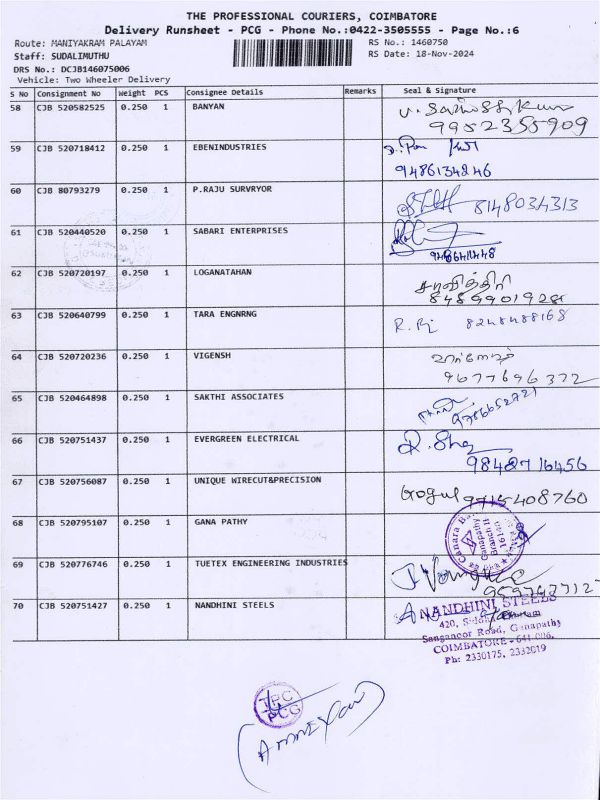 THE PROFESSIONAL COURIERS, COIMBATORE
Delivery Runsheet - PCG - Phone No.:0422-3505555 - Page No.:6
Route: MANIYAKRAM PALAYAM RS No.: 1460750
Staff: SUDALIMUTHU RS Date: 18-Nov-2024
DRS No.: DCJB146075006
Vehicle: Two Wheeler Delivery
S No Consignment No Weight PCS Consignee Details Remarks Seal & Signature
58 CJB 520582525 0.250 1 BANYAN
9952355909
59 CJB 520718412 0.250 1 EBENINDUSTRIES
9486134246
60 CJB 80793279 0.250 1 P.RAJU SURVRYOR 8148034313
61 CJB 520440520 0.250 1 SABARI ENTERPRISES
62 CJB 520720197 0.250 1 LOGANATAHAN சாவித்திரி
63 CJB 520640799 0.250 1 TARA ENGNRNG 8248488168
64 CJB 520720236 0.250 1 VIGENSH
9677696372
65 CJB 520464898 0.250 1 SAKTHI ASSOCIATES 9786652721
66 CJB 520751437 0.250 1 EVERGREEN ELECTRICAL
67 CJB 520756087 0.250 1 UNIQUE WIRECUT&PRECISION Gogul 9715408760
68 CJB 520795107 0.250 1 GANA PATHY
Canara Ganapathy Branch II
69 CJB 520776746 0.250 1 TUETEX ENGINEERING INDUSTRIES
70 CJB 520751427 0.250 1 NANDHINI STEELS
NANDHINI STEELS
420,
Sanganoor Road, Ganapathy
COIMBATORE - 641 006.
Ph: 2330175, 2332019
TPC
PCG